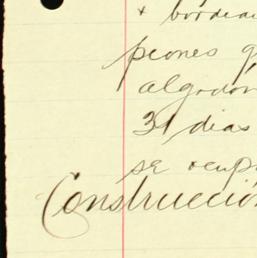 + bordea
peones g
algodon
31 dias
se ocup
Construcción